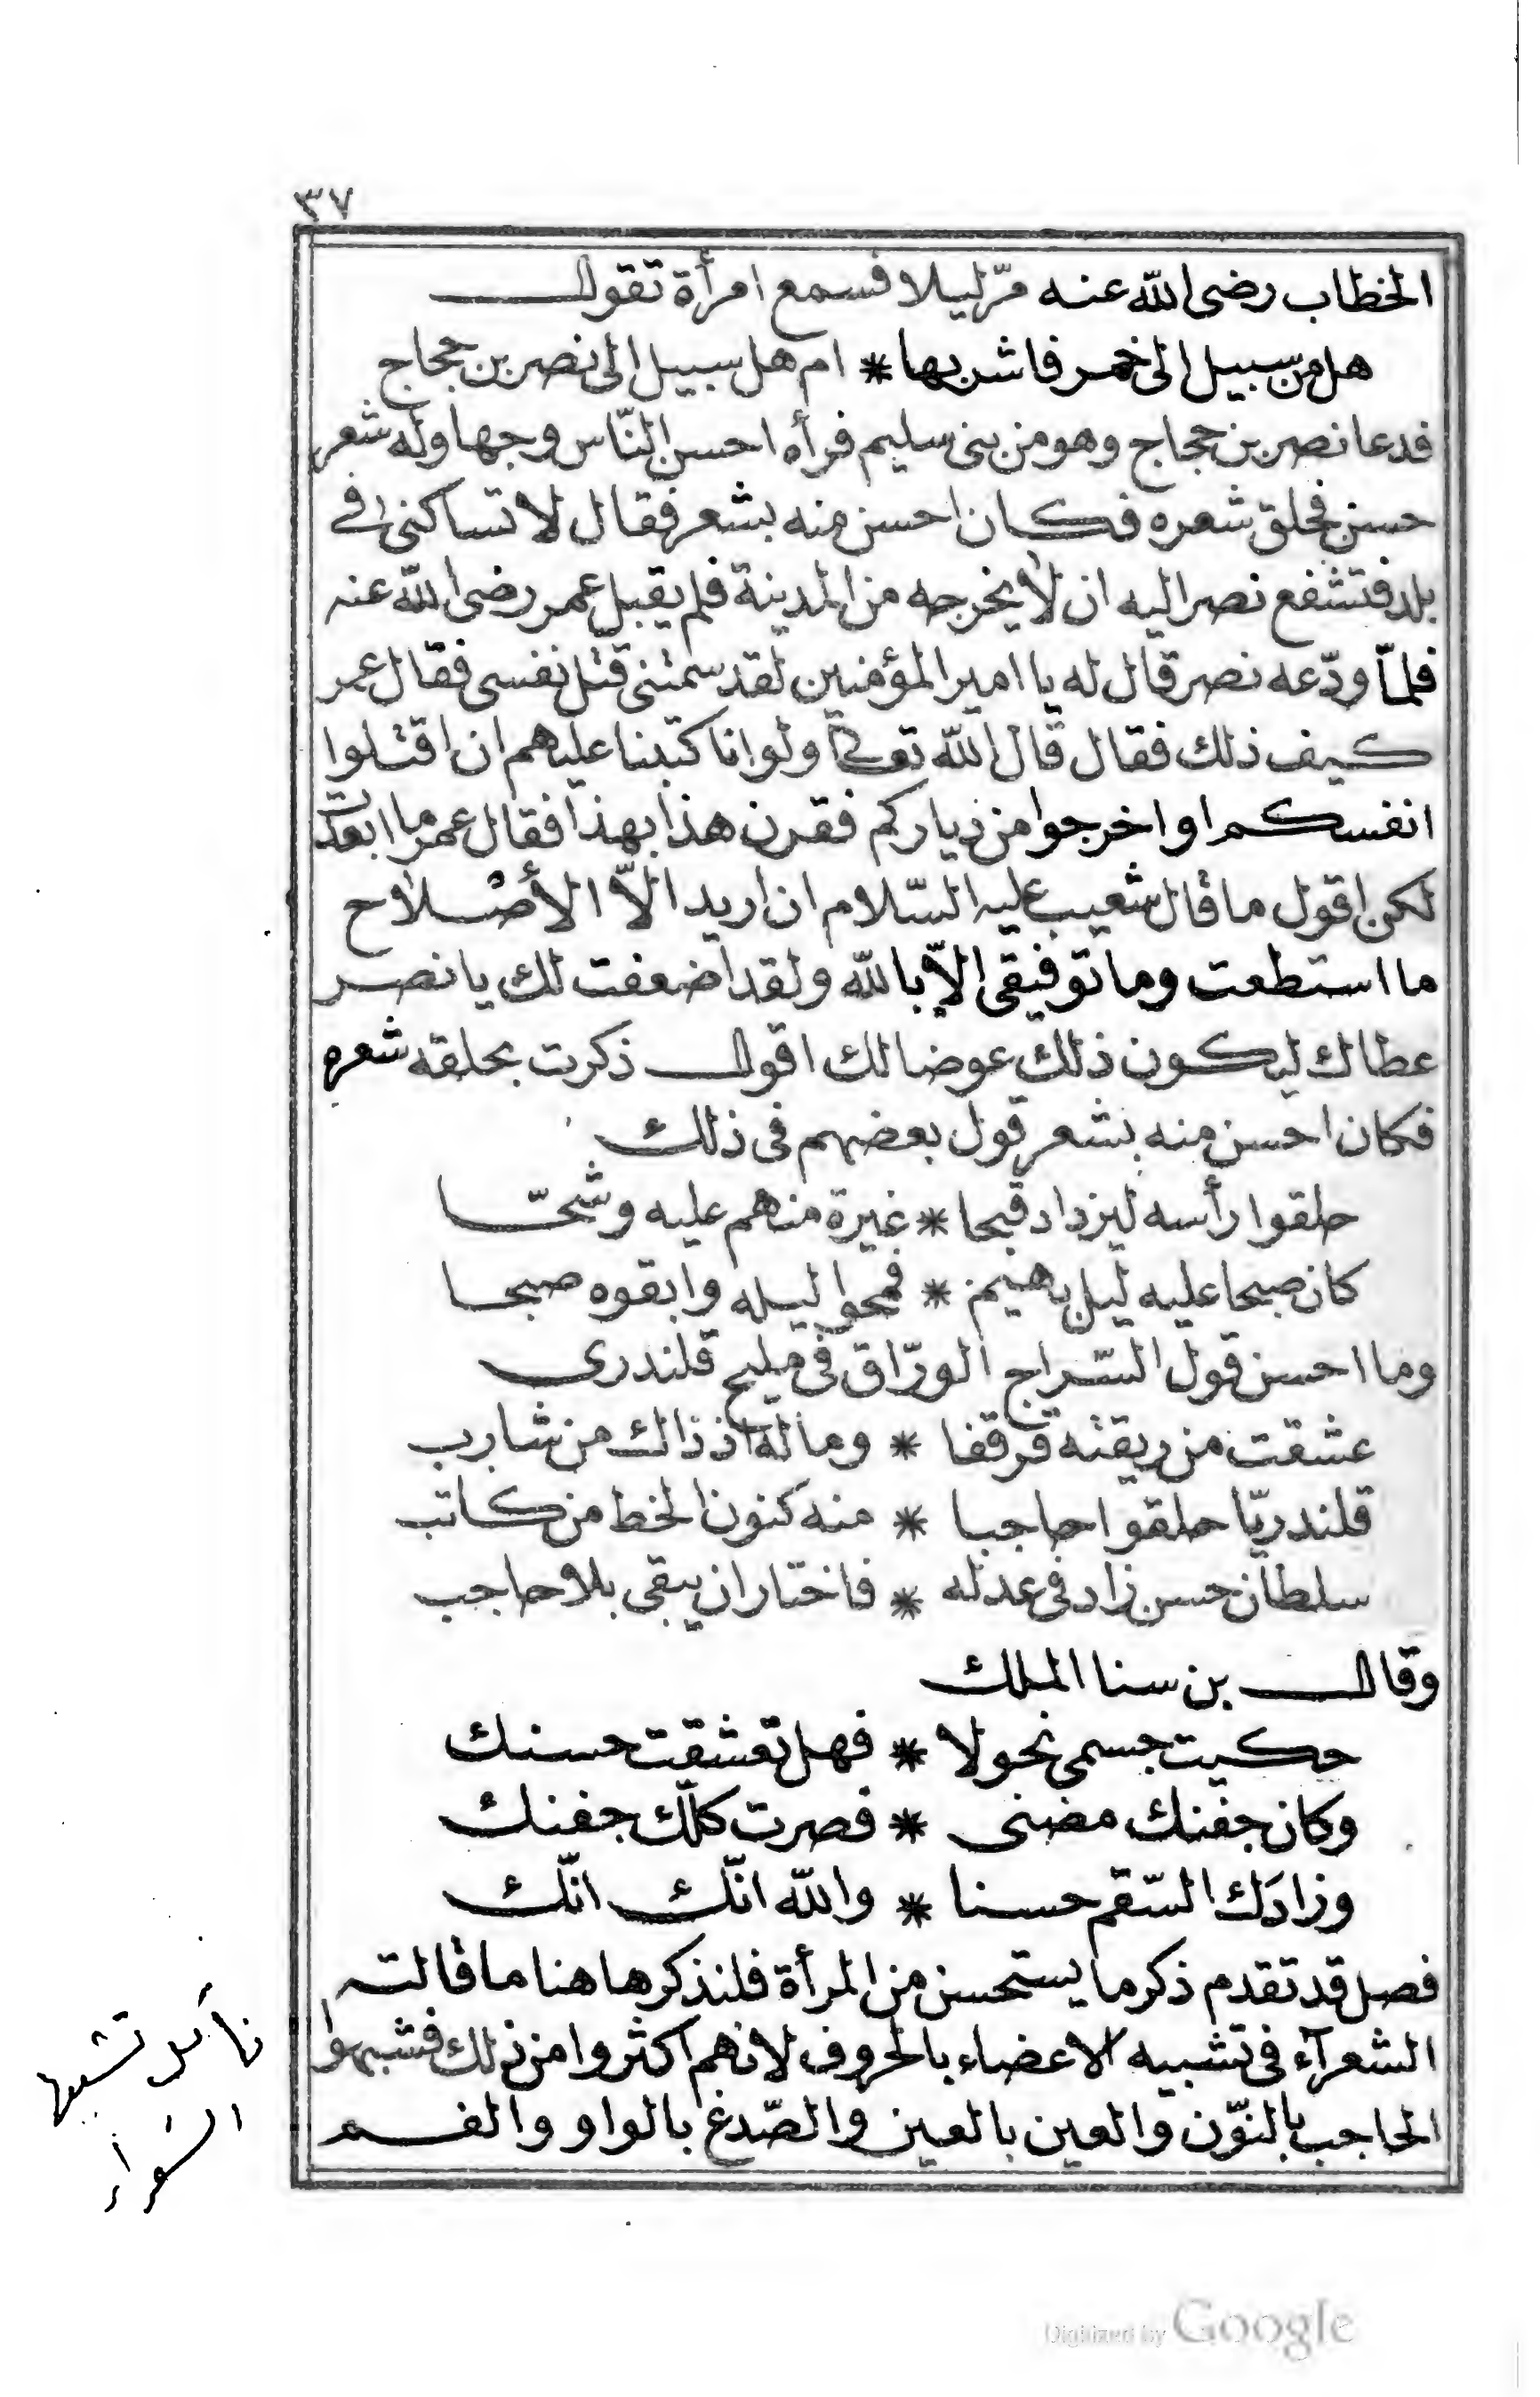 ٣٧
الخطاب رضى الله عنه مرّ ليلا فسمع امرأة تقول
هل من سبيل الى خمر فاشربها * ام هل سبيل الى نصر بن حجاج
فدعا نصر بن حجاج وهو من بنى سليم فرأه احسن النّاس وجها وله شعر
حسن فحلق شعره فكان احسن منه بشعر فقال لا تساكنى فى
بلد فتشفع نصر اليه ان لا يخرجه من المدينة فلم يقبل عمر رضى الله عنه
فلمّا ودّعه نصر قال له يا امير المؤمنين لقد سمتنى قتل نفسى فقال عمر
كيف ذلك فقال قال الله تعالى ولو انا كتبنا عليهم ان اقتلوا
انفسكم او اخرجوا من دياركم فقرن هذا بهذا فقال عمر ما ابعدت
لكن اقول ما قال شعيب عليه السّلام ان اريد الاّ الأصلاح
ما استطعت وما توفيقى الاّ بالله ولقد اضعفت لك يا نصر
عطاك ليكون ذلك عوضا لك اقول ذكرت بحلقه شعره
فكان احسن منه بشعر قول بعضهم فى ذلك
حلقوا رأسه ليزداد قبحا * غيرة منهم عليه وشحّا
كان صبحا عليه ليل بهيم * فمحوا ليله وابقوه صبحا
وما احسن قول السّراج الورّاق فى مليح قلندرى
عشقت من ريقته قرقفا * وما له اذ ذاك من شارب
قلندريّا حلقوا حاجبا * منه كنون الخط من كاتب
سلطان حسن زاد فى عدله * فاختار ان يبقى بلا حاجب
وقال بن سنا الملك
حكيت جسمى نحولا * فهل تعشقت حسنك
وكان جفنك مضنى * فصرت كلّك جفنك
وزادَك السّقم حسنا * والله انّك انّك
فصل قد تقدم ذكر ما يستحسن من المرأة فلنذكر هاهنا ما قالته
الشعرآء فى تشبيه الاعضاء بالحروف لانهم اكثروا من ذلك فشبهوا
الحاجب بالنّون والعين بالعين والصّدغ بالواو والفم
تشبيها
الشعراء
Digitized by Google